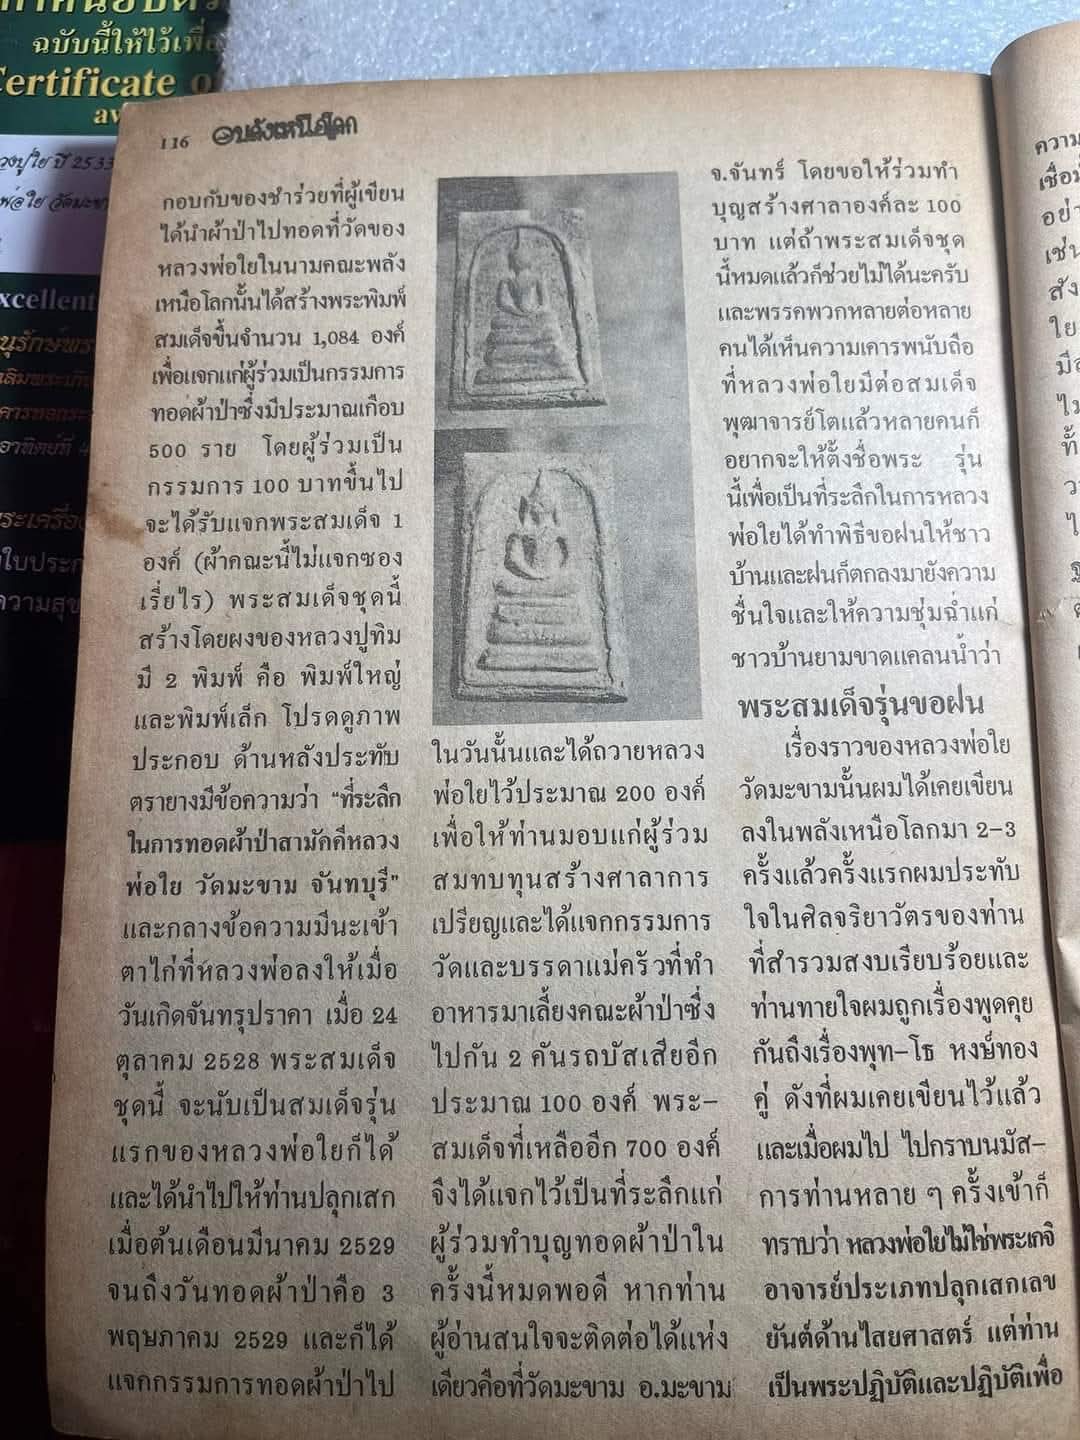 ฉบับนี้ให้ไว้เพื่อ
Certificate o
av
วงปู่ใย ปี 2533
พ่อใย วัดมะขา
xcellent
116 พลังเหนือโลก
กอบกับของชำร่วยที่ผู้เขียน
ได้นำผ้าป่าไปทอดที่วัดของ
หลวงพ่อใยในนามคณะพลัง
เหนือโลกนั้นได้สร้างพระพิมพ์
สมเด็จขึ้นจำนวน 1,084 องค์
เพื่อแจกแก่ผู้ร่วมเป็นกรรมการ
ทอดผ้าป่าซึ่งมีประมาณเกือบ
500 ราย โดยผู้ร่วมเป็น
กรรมการ 100 บาทขึ้นไป
จะได้รับแจกพระสมเด็จ 1
องค์ (ผ้าคณะนี้ไม่แจกซอง
เรี่ยไร) พระสมเด็จชุดนี้
สร้างโดยผงของหลวงปู่ทิม
มี 2 พิมพ์ คือ พิมพ์ใหญ่
และพิมพ์เล็ก โปรดดูภาพ
ประกอบ ด้านหลังประทับ
ตรายางมีข้อความว่า "ที่ระลึก
ในการทอดผ้าป่าสามัคคีหลวง
พ่อใย วัดมะขาม จันทบุรี"
และกลางข้อความมีนะเข้า
ตาไก่ที่หลวงพ่อลงให้เมื่อ
วันเกิดจันทรุปราคา เมื่อ 24
ตุลาคม 2528 พระสมเด็จ
ชุดนี้ จะนับเป็นสมเด็จรุ่น
แรกของหลวงพ่อใยก็ได้
และได้นำไปให้ท่านปลุกเสก
เมื่อต้นเดือนมีนาคม 2529
จนถึงวันทอดผ้าป่าคือ 3
พฤษภาคม 2529 และก็ได้
แจกกรรมการทอดผ้าป่าไป
ในวันนั้นและได้ถวายหลวง
พ่อใยไว้ประมาณ 200 องค์
เพื่อให้ท่านมอบแก่ผู้ร่วม
สมทบทุนสร้างศาลาการ
เปรียญและได้แจกกรรมการ
วัดและบรรดาแม่ครัวที่ทำ
อาหารมาเลี้ยงคณะผ้าป่าซึ่ง
ไปกัน 2 คันรถบัสเสียอีก
ประมาณ 100 องค์ พระ-
สมเด็จที่เหลืออีก 700 องค์
จึงได้แจกไว้เป็นที่ระลึกแก่
ผู้ร่วมทำบุญทอดผ้าป่าใน
ครั้งนี้หมดพอดี หากท่าน
ผู้อ่านสนใจจะติดต่อได้แห่ง
เดียวคือที่วัดมะขาม อ.มะขาม
จ.จันทร์ โดยขอให้ร่วมทำ
บุญสร้างศาลาองค์ละ 100
บาท แต่ถ้าพระสมเด็จชุด
นี้หมดแล้วก็ช่วยไม่ได้นะครับ
และพรรคพวกหลายต่อหลาย
คนได้เห็นความเคารพนับถือ
ที่หลวงพ่อใยมีต่อสมเด็จ
พุฒาจารย์โตแล้วหลายคนก็
อยากจะให้ตั้งชื่อพระ รุ่น
นี้เพื่อเป็นที่ระลึกในการหลวง
พ่อใยได้ทำพิธีขอฝนให้ชาว
บ้านและฝนก็ตกลงมายังความ
ชื่นใจและให้ความชุ่มฉ่ำแก่
ชาวบ้านยามขาดแคลนน้ำว่า
พระสมเด็จรุ่นขอฝน
เรื่องราวของหลวงพ่อใย
วัดมะขามนั้นผมได้เคยเขียน
ลงในพลังเหนือโลกมา 2-3
ครั้งแล้วครั้งแรกผมประทับ
ใจในศิลจริยาวัตรของท่าน
ที่สำรวมสงบเรียบร้อยและ
ท่านทายใจผมถูกเรื่องพูดคุย
กันถึงเรื่องพุท-โธ หงษ์ทอง
คู่ ดังที่ผมเคยเขียนไว้แล้ว
และเมื่อผมไป ไปกราบนมัส-
การท่านหลาย ๆ ครั้งเข้าก็
ทราบว่า หลวงพ่อใยไม่ใช่พระเกจิ
อาจารย์ประเภทปลุกเสกเลข
ยันต์ด้านไสยศาสตร์ แต่ท่าน
เป็นพระปฏิบัติและปฏิบัติเพื่อ